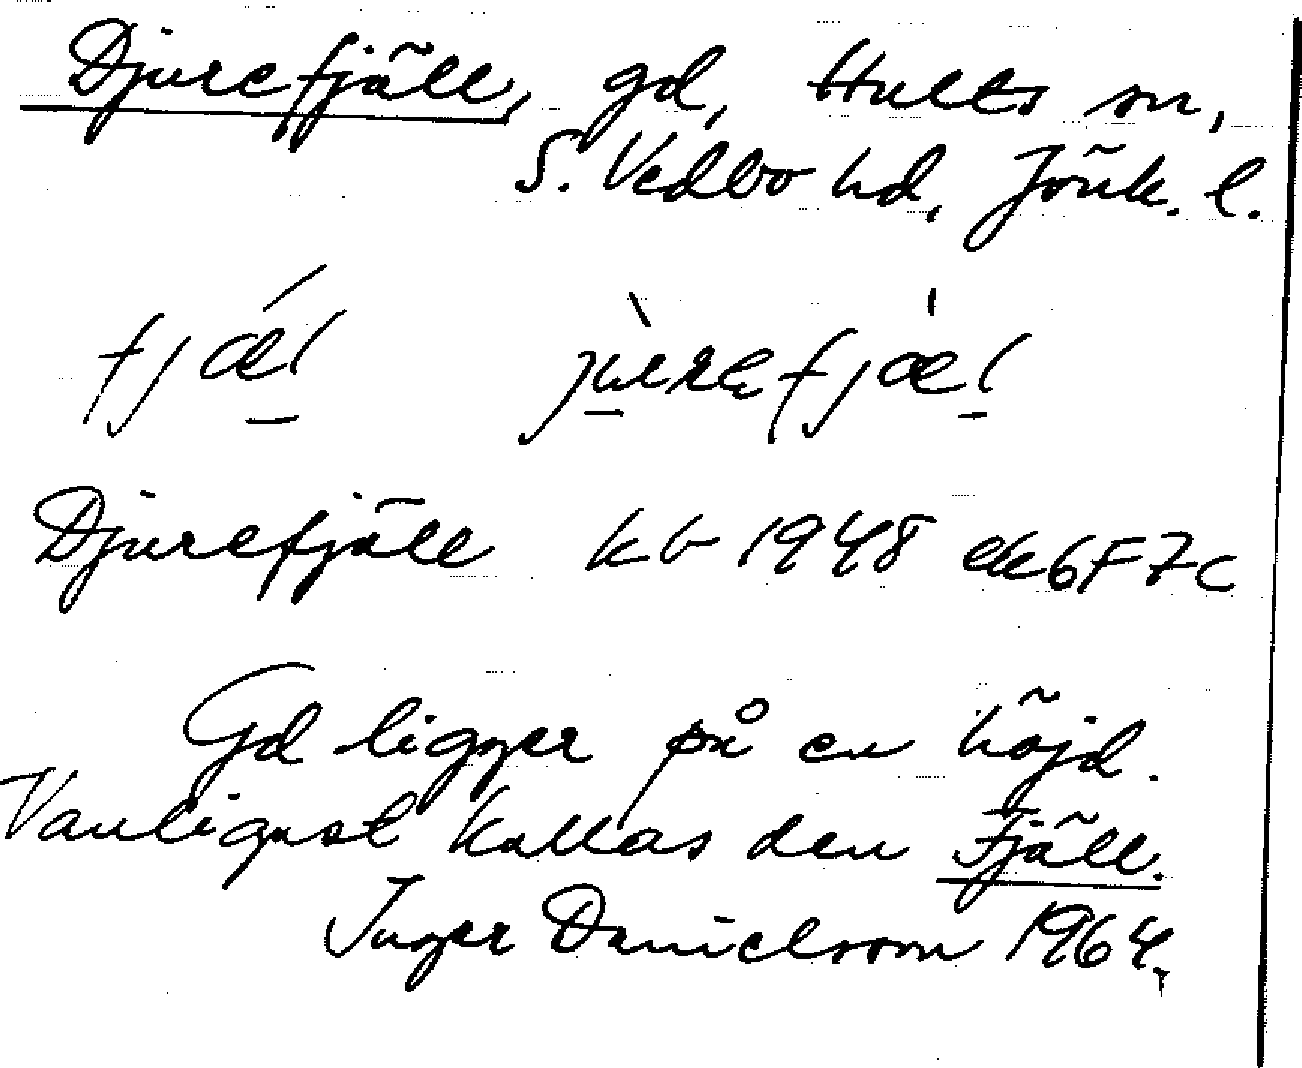 Djurefjäll, gd, Hults sn,
S. Vedbo hd, Jönk. l.
fjǽl jùrefjæ̀l
Djurefjäll kb 1948 ek6F7c
Gd ligger på en höjd.
Vanligast kallas den Fjäll.
Inger Danielsson 1964.